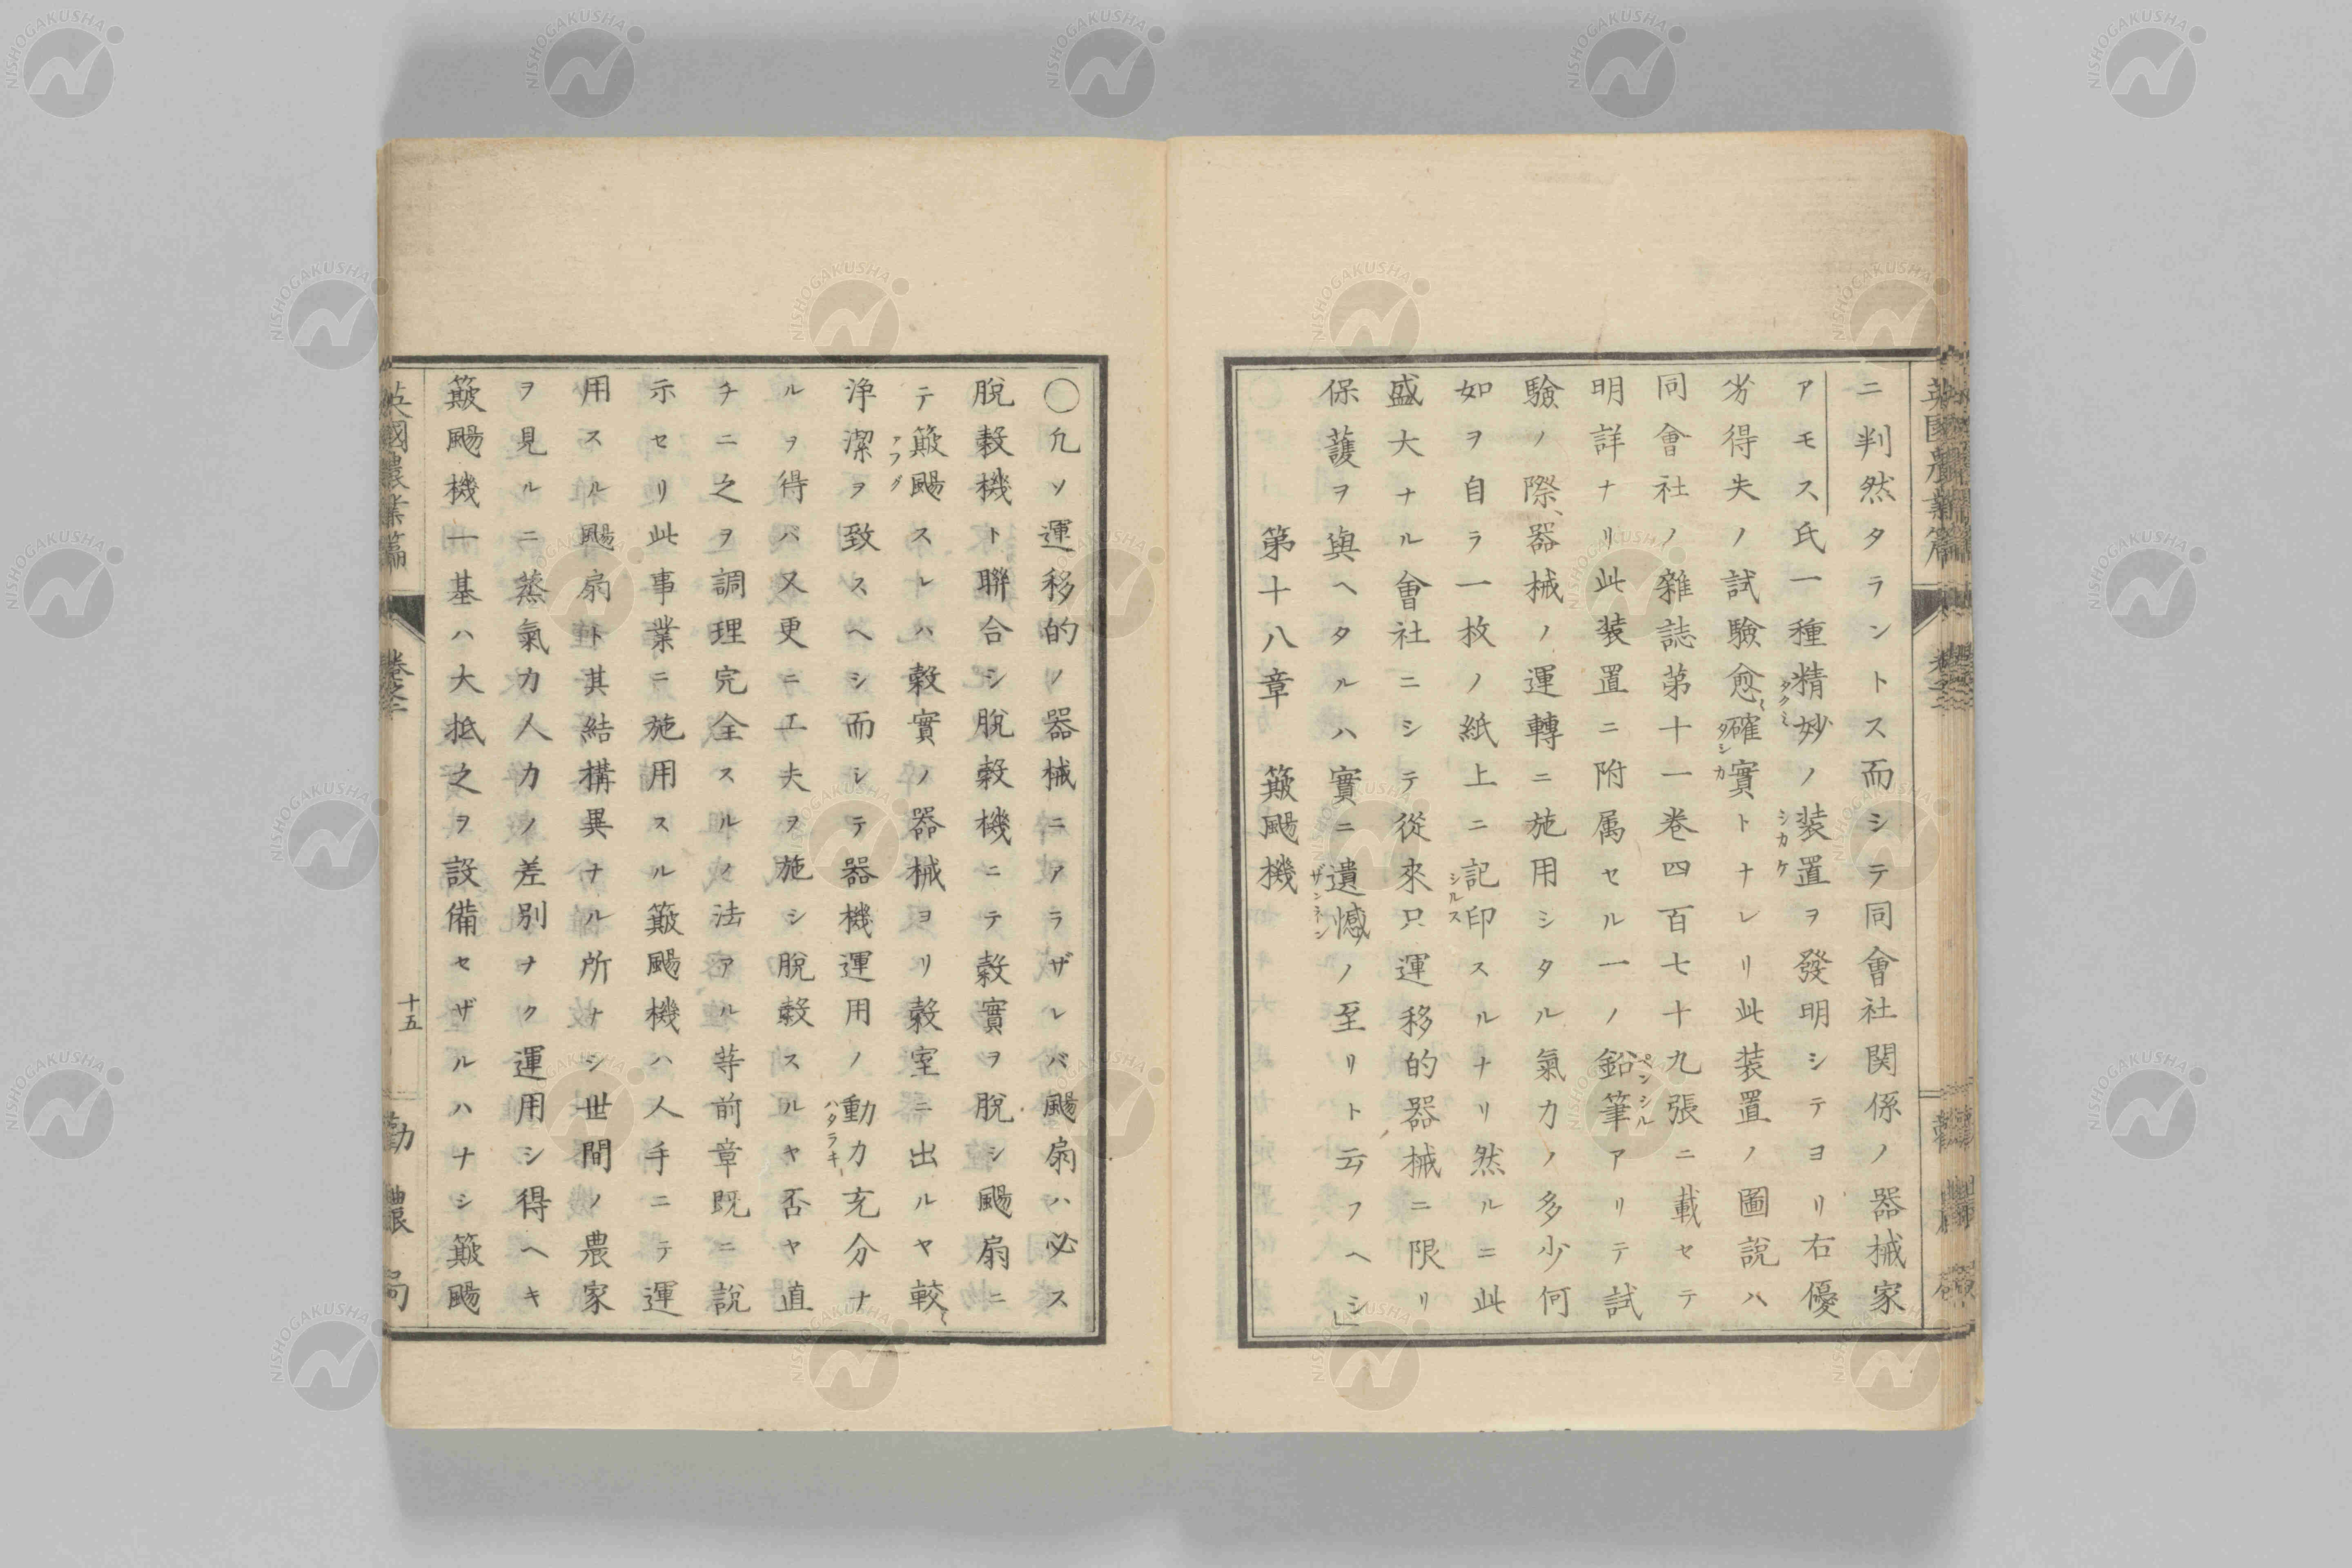 ニ判然タラントス而シテ同會社関係ノ器械家
アモス氏一種精妙ノ装置ヲ發明シテヨリ右優
劣得失ノ試驗愈確實トナレリ此装置ノ圖說ハ
同會社ノ雜誌第十一巻四百七十九張ニ載セテ
明詳ナリ此装置ニ附属セル一ノ鉛筆アリテ試
驗ノ際、器械ノ運轉ニ施用シタル氣力ノ多少何
如ヲ自ラ一枚ノ紙上ニ記印スルナリ然ルニ此
盛大ナル會社ニシテ從來只運移的器械ニ限リ
保護ヲ與ヘタルハ實ニ遺憾ノ至リト云フヘシ」
第十八章 簸颺機
〇凢ソ運移的ノ器械ニアラザレバ颺扇ハ必ス
脫穀機ト聯合シ脫穀機ニテ穀實ヲ脫シ颺扇ニ
テ簸颺スレハ穀實ノ器械ヨリ穀室ニ出ルヤ較〻
浄潔ヲ致スヘシ而シテ器機運用ノ動力充分ナ
ルヲ得バ又更ニ工夫ヲ施シ脫穀スルヤ否ヤ直
チニ之ヲ調理完全スルノ法アル等前章既ニ說
示セリ此事業ニ施用スル簸颺機ハ人手ニテ運
用スル颺扇ト其結構異ナル所ナシ世間ノ農家
ヲ見ルニ蒸氣力人力ノ差別ナク運用シ得ヘキ
簸颺機一基ハ大抵之ヲ設備セザルハナシ簸颺
英國農業篇 巻之二 十五 勸農局
タクミ
シカケ
タシカ
ペンシル
シルス
ザンネン
アフグ
ハタラキ
NISHOGAKUSHA